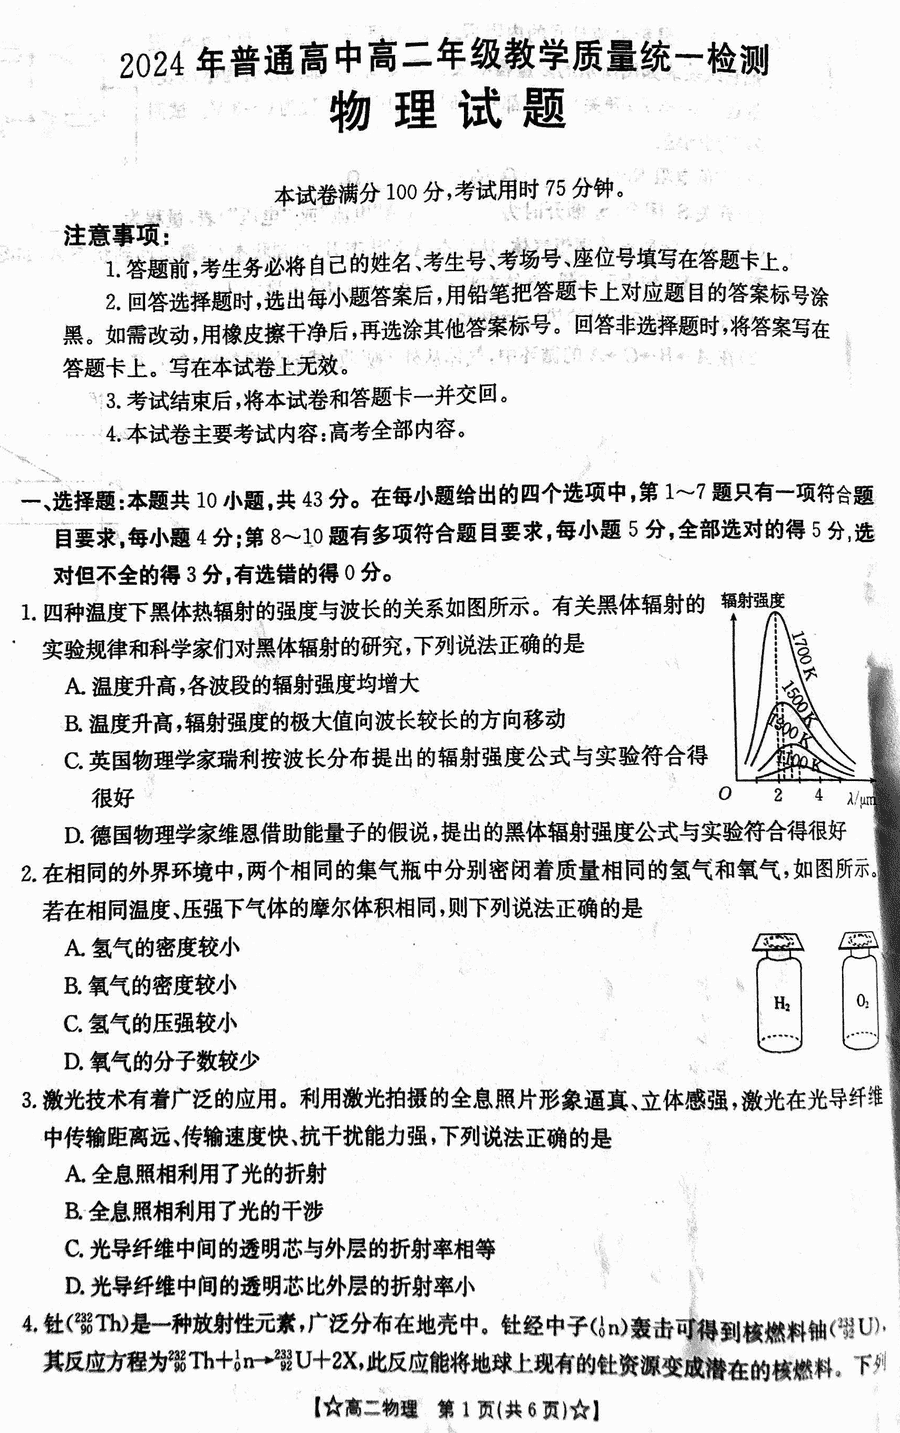 2024年普通高中高二年级教学质量统一检测
物理试题
本试卷满分100分,考试用时75分钟。
注意事项:
1.答题前,考生务必将自己的姓名、考生号、考场号、座位号填写在答题卡上。
2.回答选择题时,选出每小题答案后,用铅笔把答题卡上对应题目的答案标号涂
黑。如需改动,用橡皮擦干净后,再选涂其他答案标号。回答非选择题时,将答案写在
答题卡上。写在本试卷上无效。
3.考试结束后,将本试卷和答题卡一并交回。
4.本试卷主要考试内容:高考全部内容。
一、选择题:本题共10小题,共43分。在每小题给出的四个选项中,第1~7题只有一项符合题
目要求,每小题4分;第8~10题有多项符合题目要求,每小题5分,全部选对的得5分,选
对但不全的得3分,有选错的得0分。
1.四种温度下黑体热辐射的强度与波长的关系如图所示。有关黑体辐射的
实验规律和科学家们对黑体辐射的研究,下列说法正确的是
A.温度升高,各波段的辐射强度均增大
B.温度升高,辐射强度的极大值向波长较长的方向移动
C.英国物理学家瑞利按波长分布提出的辐射强度公式与实验符合得
很好
D.德国物理学家维恩借助能量子的假说,提出的黑体辐射强度公式与实验符合得很好
辐射强度
1700K
1500K
1300K
1100K
O 2 4 λ/μm
2.在相同的外界环境中,两个相同的集气瓶中分别密闭着质量相同的氢气和氧气,如图所示。
若在相同温度、压强下气体的摩尔体积相同,则下列说法正确的是
A.氢气的密度较小
B.氧气的密度较小
C.氢气的压强较小
D.氧气的分子数较少
H₂ O₂
3.激光技术有着广泛的应用。利用激光拍摄的全息照片形象逼真、立体感强,激光在光导纤维
中传输距离远、传输速度快、抗干扰能力强,下列说法正确的是
A.全息照相利用了光的折射
B.全息照相利用了光的干涉
C.光导纤维中间的透明芯与外层的折射率相等
D.光导纤维中间的透明芯比外层的折射率小
4.钍(²³²₉₀Th)是一种放射性元素,广泛分布在地壳中。钍经中子(¹₀n)轰击可得到核燃料铀(²³³₉₂U),
其反应方程为²³²₉₀Th+¹₀n→²³³₉₂U+2X,此反应能将地球上现有的钍资源变成潜在的核燃料。下列
【☆高二物理 第1页(共6页)☆】